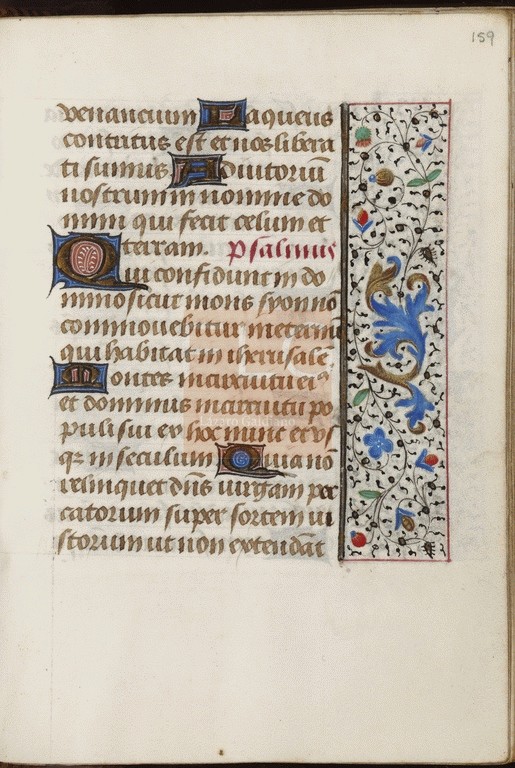 159
venancium Laqueus
contritus est et nos libera
ti sumus Adiutoriū
nostrum in nomine do
mini qui fecit celum et
terram. psalmus
Qui confidunt in do
mino sicut mons syon no
commouebitur in eternū
qui habitat in iherusalē
Montes in circuitu eiꝰ
et dominus in circuitu po
puli sui ex hoc nunc et vs
qꝫ in seculum Quia nō
relinquet dn̄s uirgam pec
catorum super sortem iu
storum ut non extendāt
Lázaro Galdiano